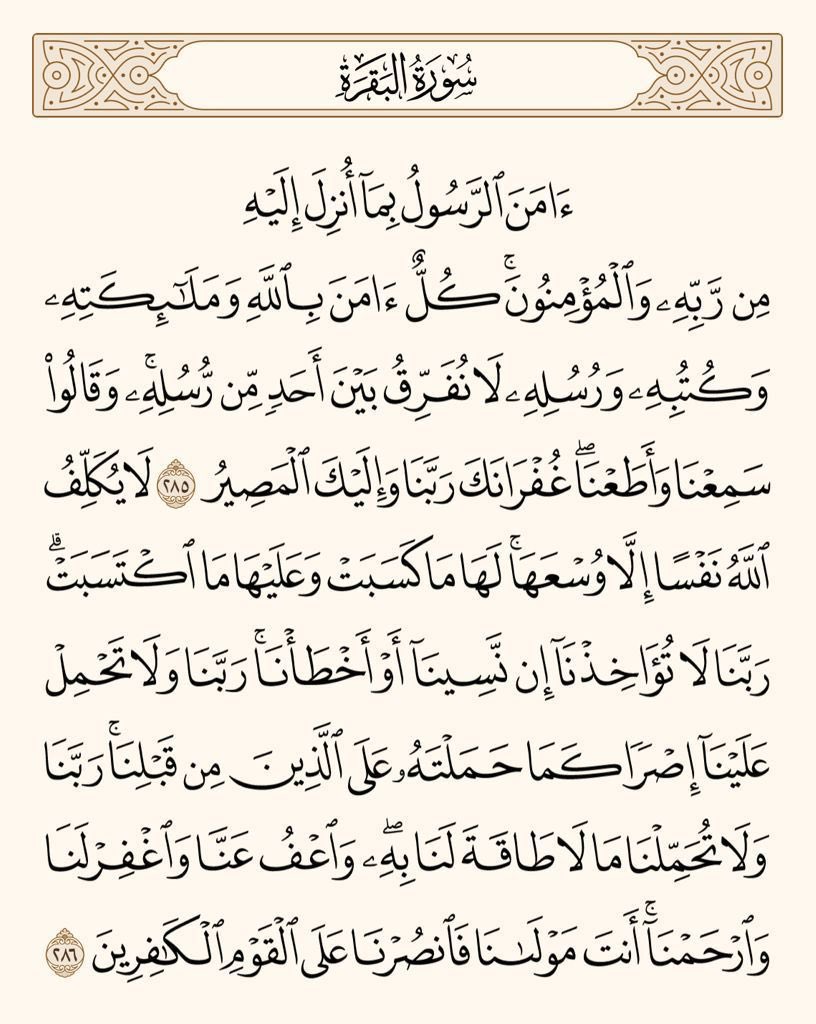 سُورَةُ البَقَرَةِ
ءَامَنَ ٱلرَّسُولُ بِمَآ أُنزِلَ إِلَيۡهِ
مِن رَّبِّهِۦ وَٱلۡمُؤۡمِنُونَۚ كُلٌّ ءَامَنَ بِٱللَّهِ وَمَلَٰٓئِكَتِهِۦ
وَكُتُبِهِۦ وَرُسُلِهِۦ لَا نُفَرِّقُ بَيۡنَ أَحَدٖ مِّن رُّسُلِهِۦۚ وَقَالُواْ
سَمِعۡنَا وَأَطَعۡنَاۖ غُفۡرَانَكَ رَبَّنَا وَإِلَيۡكَ ٱلۡمَصِيرُ ٢٨٥ لَا يُكَلِّفُ
ٱللَّهُ نَفۡسًا إِلَّا وُسۡعَهَاۚ لَهَا مَا كَسَبَتۡ وَعَلَيۡهَا مَا ٱكۡتَسَبَتۡۗ
رَبَّنَا لَا تُؤَاخِذۡنَآ إِن نَّسِينَآ أَوۡ أَخۡطَأۡنَاۚ رَبَّنَا وَلَا تَحۡمِلۡ
عَلَيۡنَآ إِصۡرٗا كَمَا حَمَلۡتَهُۥ عَلَى ٱلَّذِينَ مِن قَبۡلِنَاۚ رَبَّنَا
وَلَا تُحَمِّلۡنَا مَا لَا طَاقَةَ لَنَا بِهِۦۖ وَٱعۡفُ عَنَّا وَٱغۡفِرۡ لَنَا
وَٱرۡحَمۡنَآۚ أَنتَ مَوۡلَىٰنَا فَٱنصُرۡنَا عَلَى ٱلۡقَوۡمِ ٱلۡكَٰفِرِينَ ٢٨٦